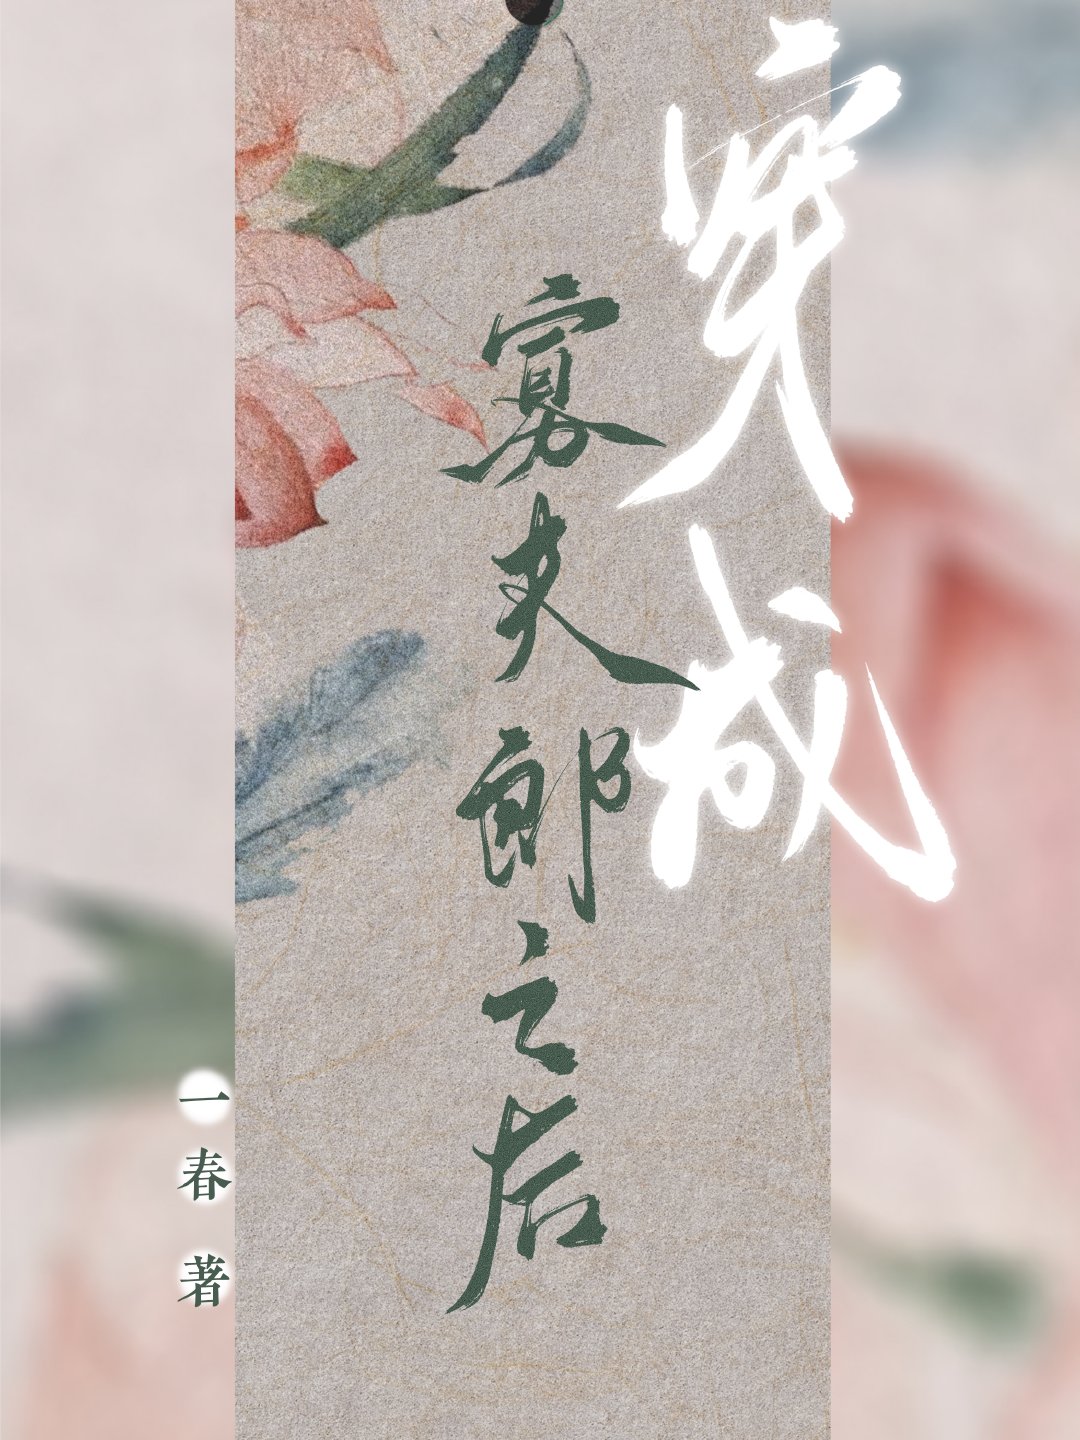 穿成
寡夫郎之后
一春 著